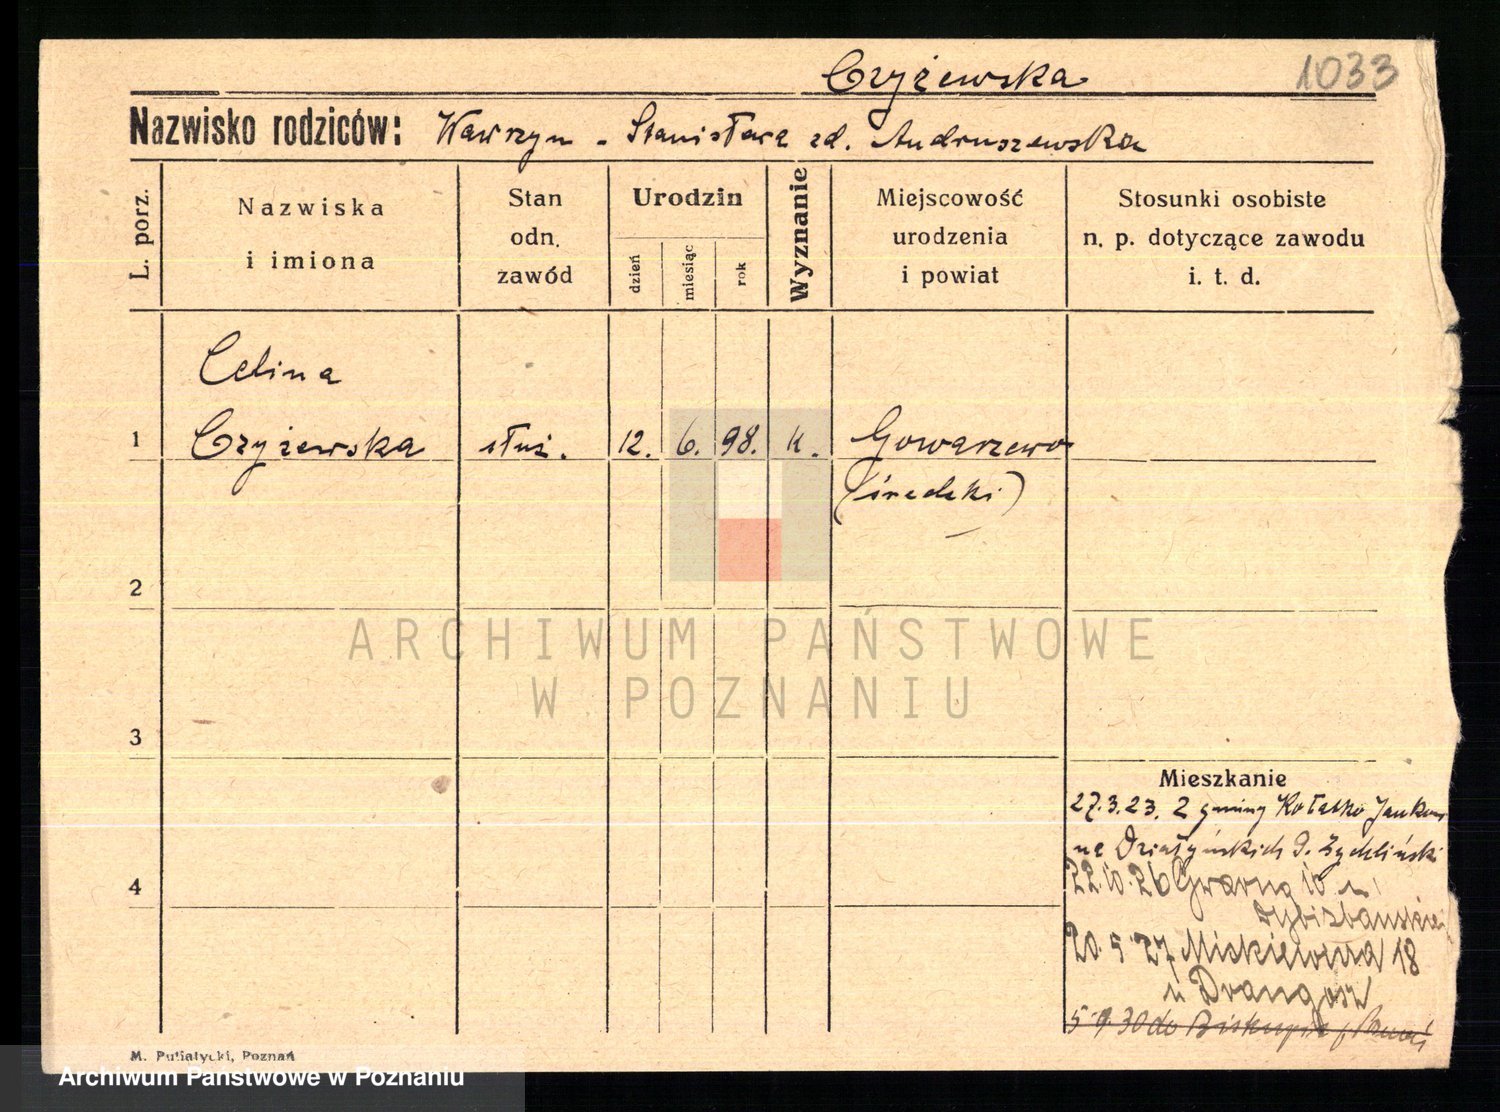 Czyżewska 1033
Nazwisko rodziców: Wawrzyn - Stanisława zd. Andruszewska
L. porz.
Nazwiska
i imiona
Stan
odn.
zawód
Urodzin
dzień
miesiąc
rok
Wyznanie
Miejscowość
urodzenia
i powiat
Stosunki osobiste
n. p. dotyczące zawodu
i. t. d.
Celina
1 Czyżewska służ. 12. 6. 98. k. Gowarzewo
(średzki)
2
3
4
Mieszkanie
27.3.23. z gminy Kołatko
na Działyńskich 9. Żychliński
22.10.26 Gwarna 10 u
20. 5 27 18
u Drangosz
5 9. 30 do
M. Putiatycki, Poznań
ARCHIWUM PAŃSTWOWE
W POZNANIU
Archiwum Państwowe w Poznaniu